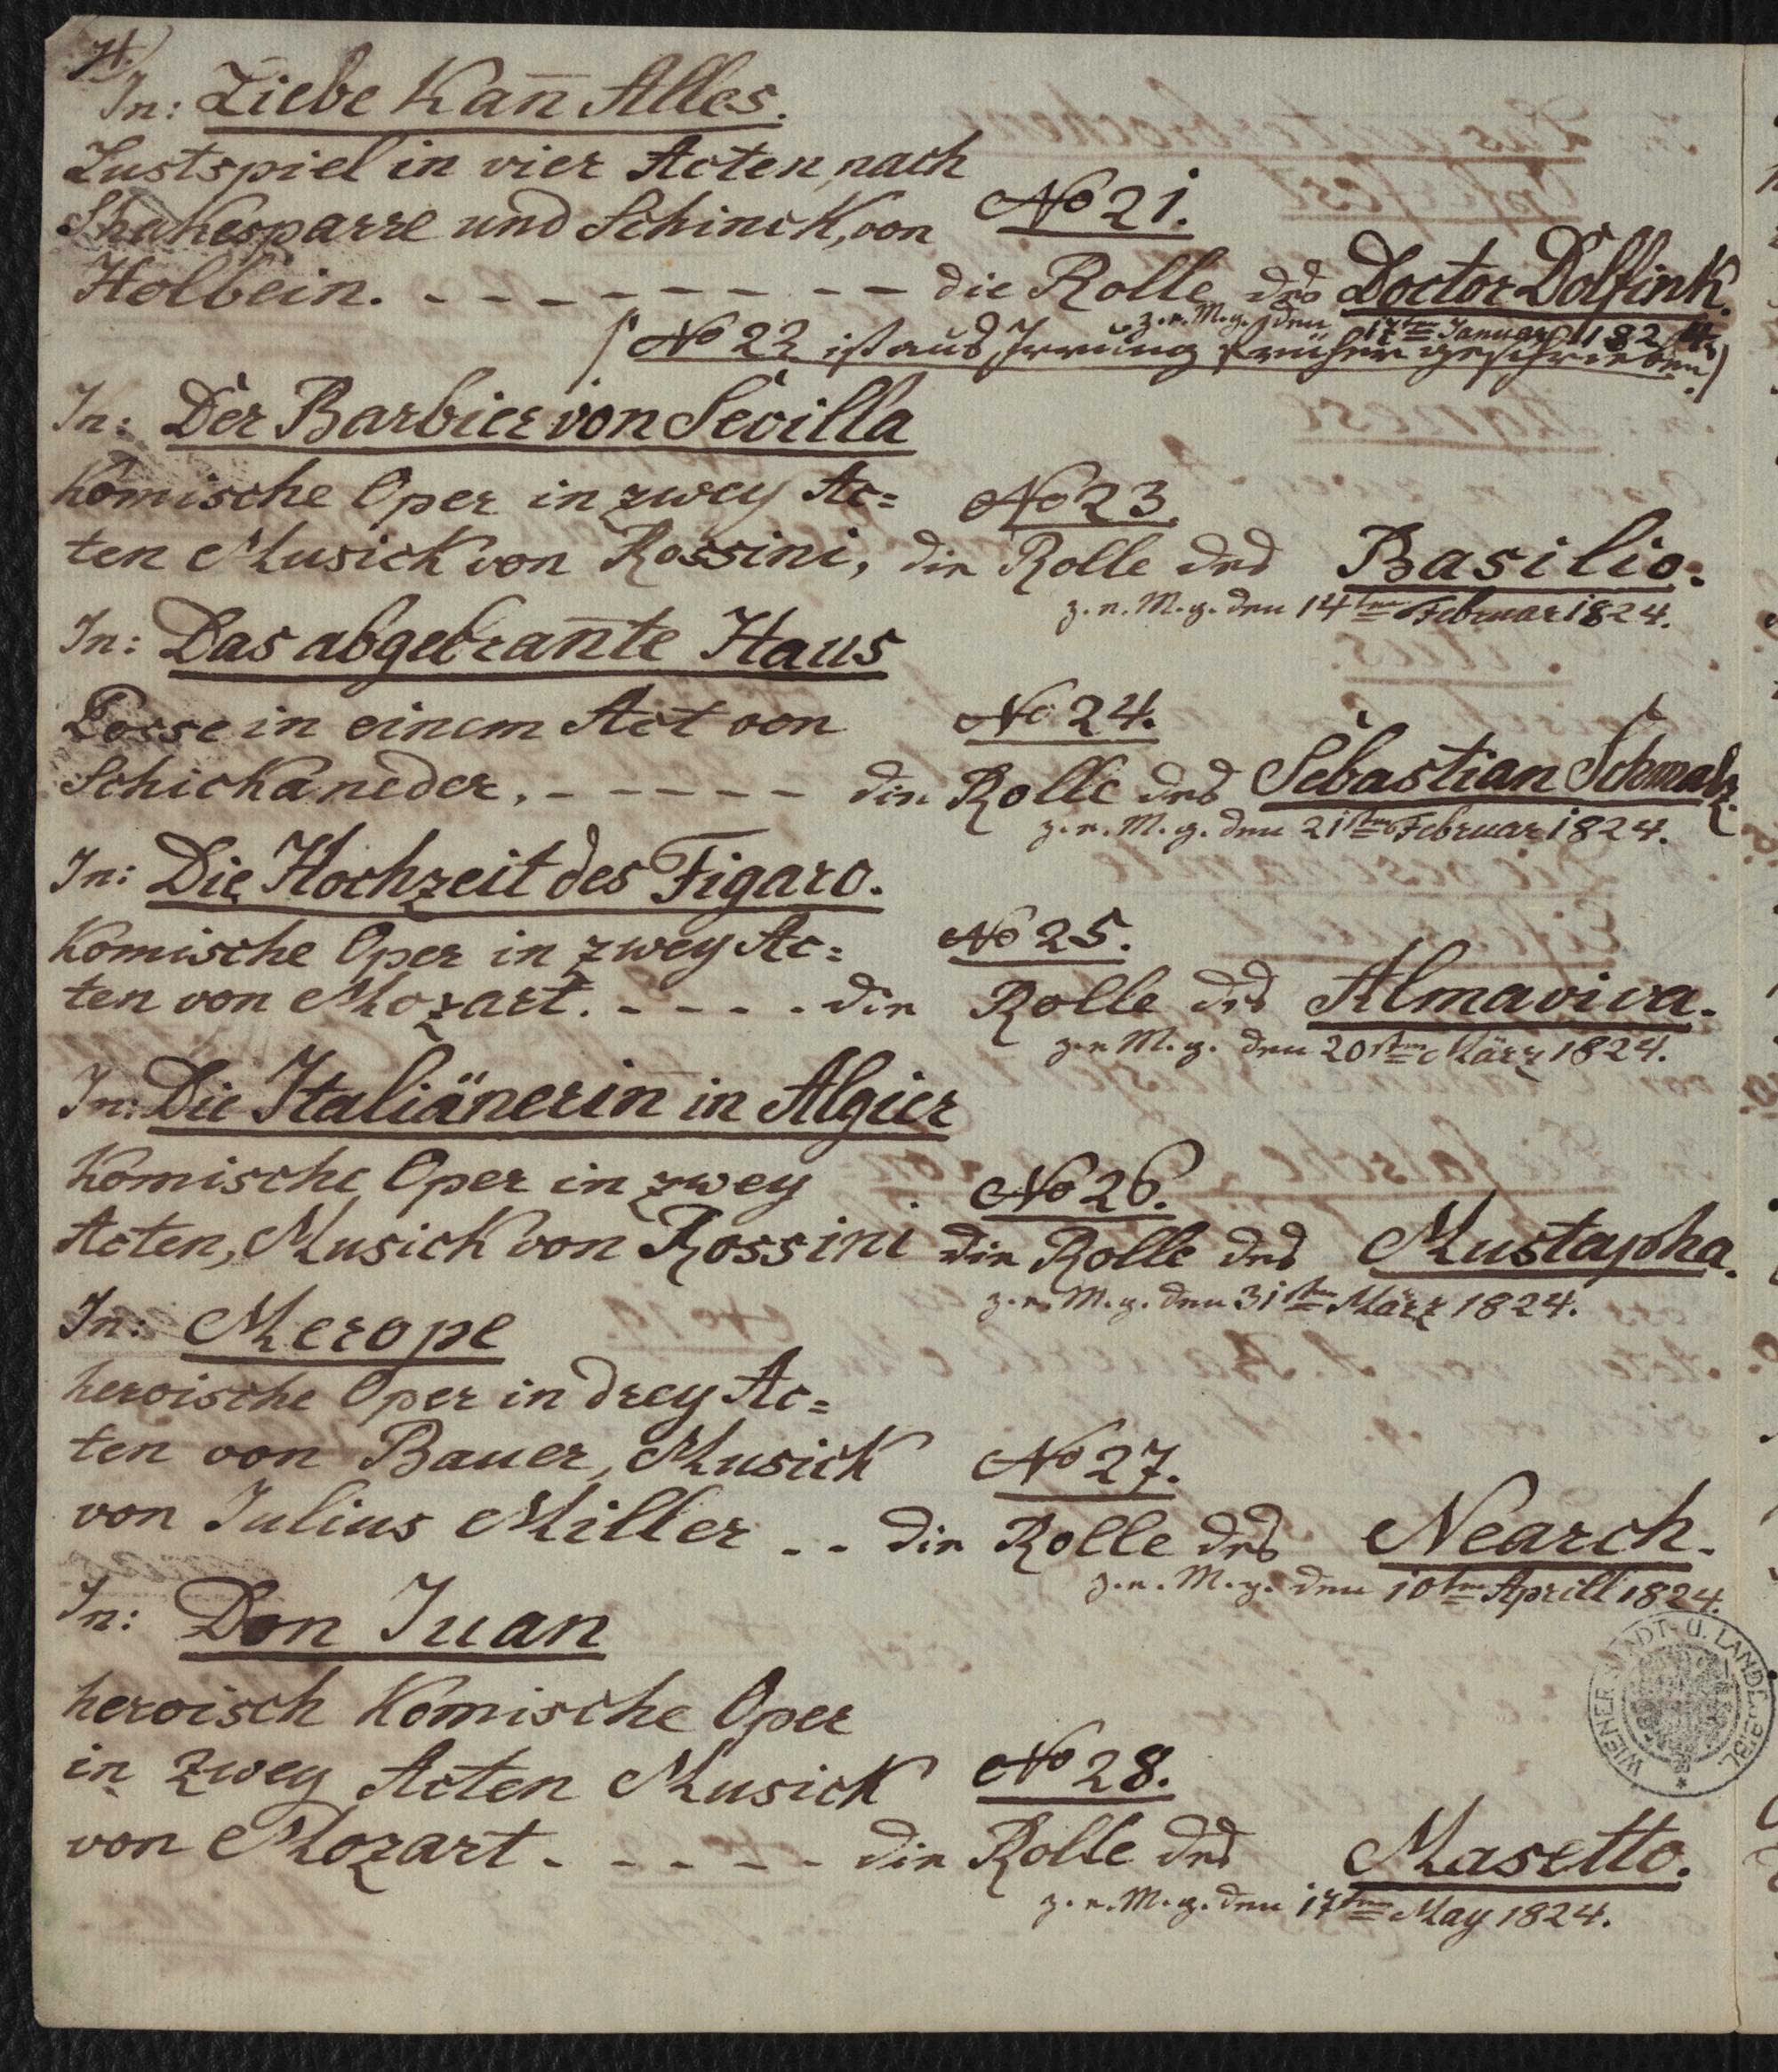 4.)
In: Liebe Kan̄ Alles.
Lustspiel in vier Acten, nach
Shakesparre und Schinck, von No 21.
Holbein. - - - - - - - - - die Rolle des Doctor Dolfink.
z. e. M. g. den 17ten Januar 1824.
(No 22 ist aus Irrung früher geschrieben.)
In: Der Barbier von Sevilla
Komische Oper in zwey Ac= No 23.
ten Musick von Rossini, die Rolle des Basilio.
z. e. M. g. den 14ten Februar 1824.
In: Das abgebran̄te Haus
Posse in einem Act von No 24.
Schickaneder. - - - - - - die Rolle des Sebastian Schmalz.
z. e. M. g. den 21sten Februar 1824.
In: Die Hochzeit des Figaro.
Komische Oper in zwey Ac= No 25.
ten von Mozart. - - - - die Rolle des Almaviva.
z. e. M. g. den 20sten März 1824.
In: Die Italiänerin̄ in Algier
Komische Oper in zwey No 26.
Acten, Musick von Rossini die Rolle des Mustapha.
z. e. M. g. den 31sten März 1824.
In: Merope
heroische Oper in drey Ac=
ten von Bauer, Musick No 27.
von Julius Miller - - die Rolle des Nearch.
z. e. M. g. den 10ten Aprill 1824.
In: Don Juan
heroisch Komische Oper
in zwey Acten Musick No 28.
von Mozart - - - - - - die Rolle des Masetto.
z. e. M. g. den 17ten May 1824.
WIENER STADT- U. LANDESBIBL.